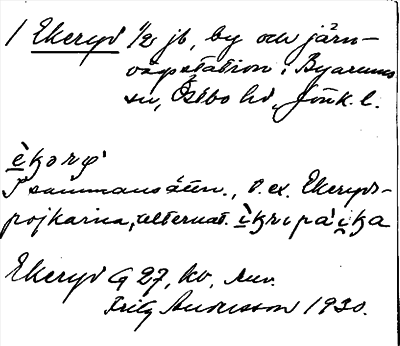 1 Ekeryd 1/2 jb, by och järn-
vägsstation i Byarums
sn, Östbo hd, Jönk. l.
I sammansättn., t. ex. Ekeryds-
pojkarna, alternat.
Ekeryd G 27, kv,
Fritz Andersson 1930.